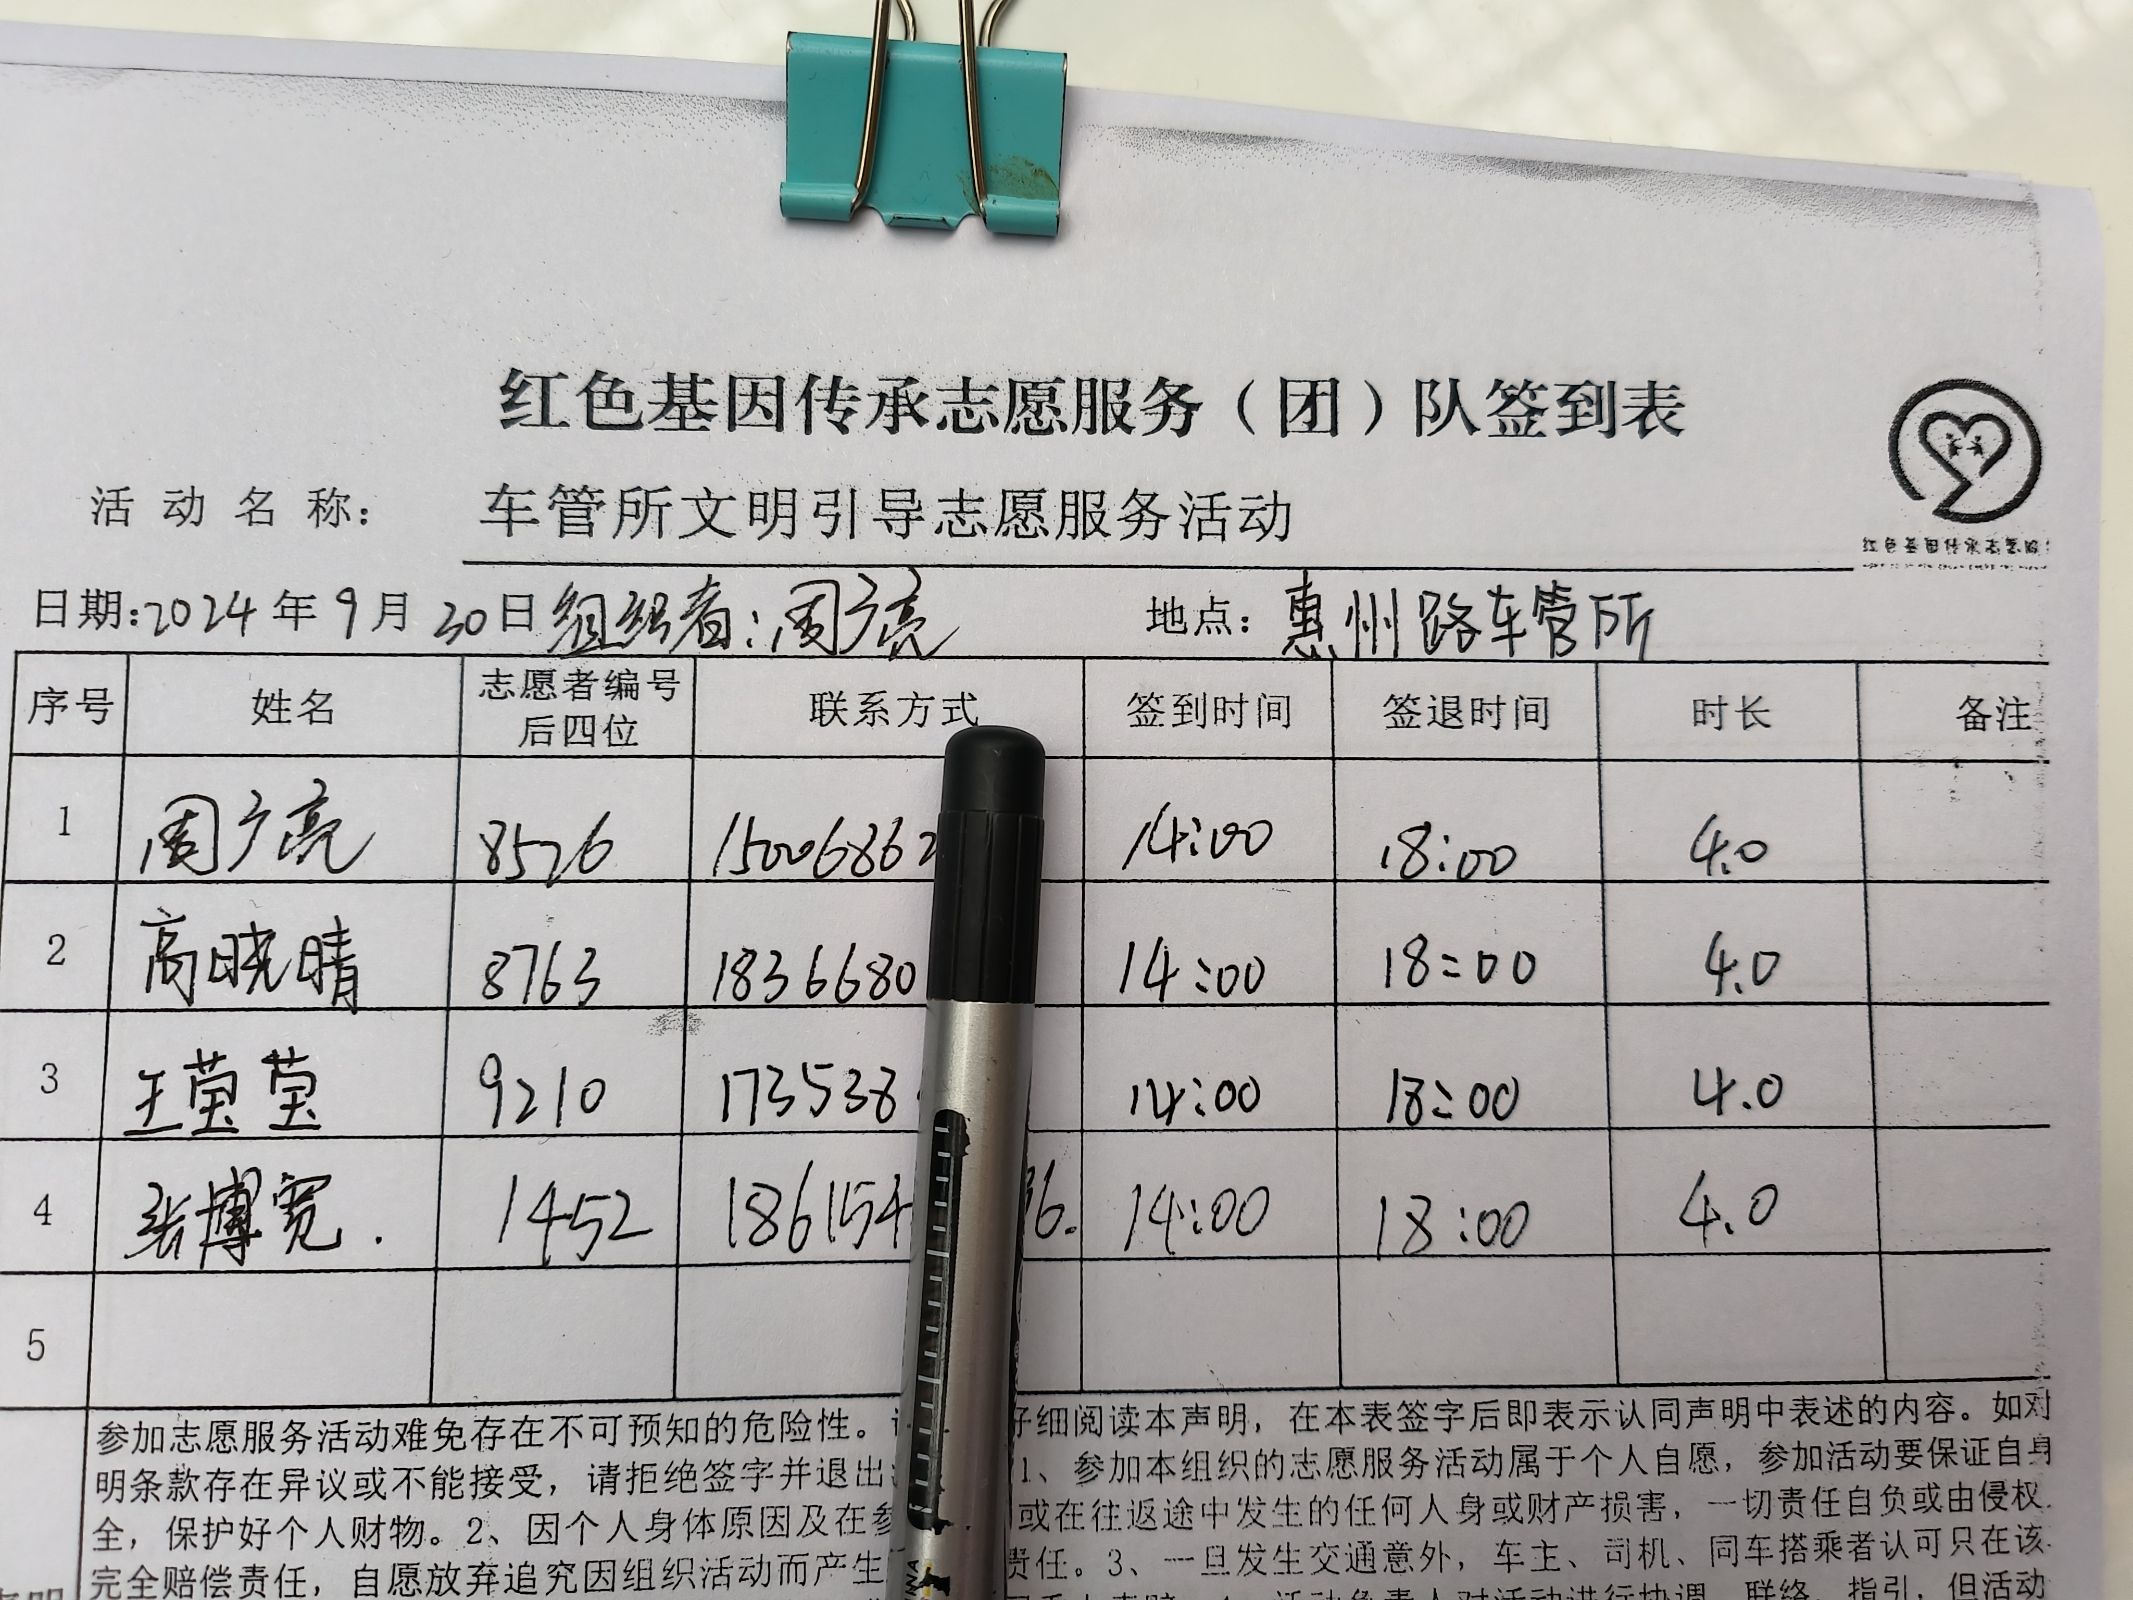 红色基因传承志愿服务（团）队签到表
红色基因传承志愿服
活动名称： 车管所文明引导志愿服务活动
日期:2024年9月30日 组织者:周广亮 地点：惠州路车管所
序号 姓名 志愿者编号后四位 联系方式 签到时间 签退时间 时长 备注
1 周广亮 8526 15006862 14:00 18:00 4.0
2 高晓晴 8763 1836680 14:00 18:00 4.0
3 王莹莹 9210 173538 14:00 18:00 4.0
4 张博宽. 1452 186154 36. 14:00 18:00 4.0
5
参加志愿服务活动难免存在不可预知的危险性。 仔细阅读本声明，在本表签字后即表示认同声明中表述的内容。如对
明条款存在异议或不能接受，请拒绝签字并退出 1、参加本组织的志愿服务活动属于个人自愿，参加活动要保证自身
全，保护好个人财物。2、因个人身体原因及在参 或在往返途中发生的任何人身或财产损害，一切责任自负或由侵权
完全赔偿责任，自愿放弃追究因组织活动而产生 责任。3、一旦发生交通意外，车主、司机、同车搭乘者认可只在该
活动负责人对活动进行协调、联络、指引，但活动